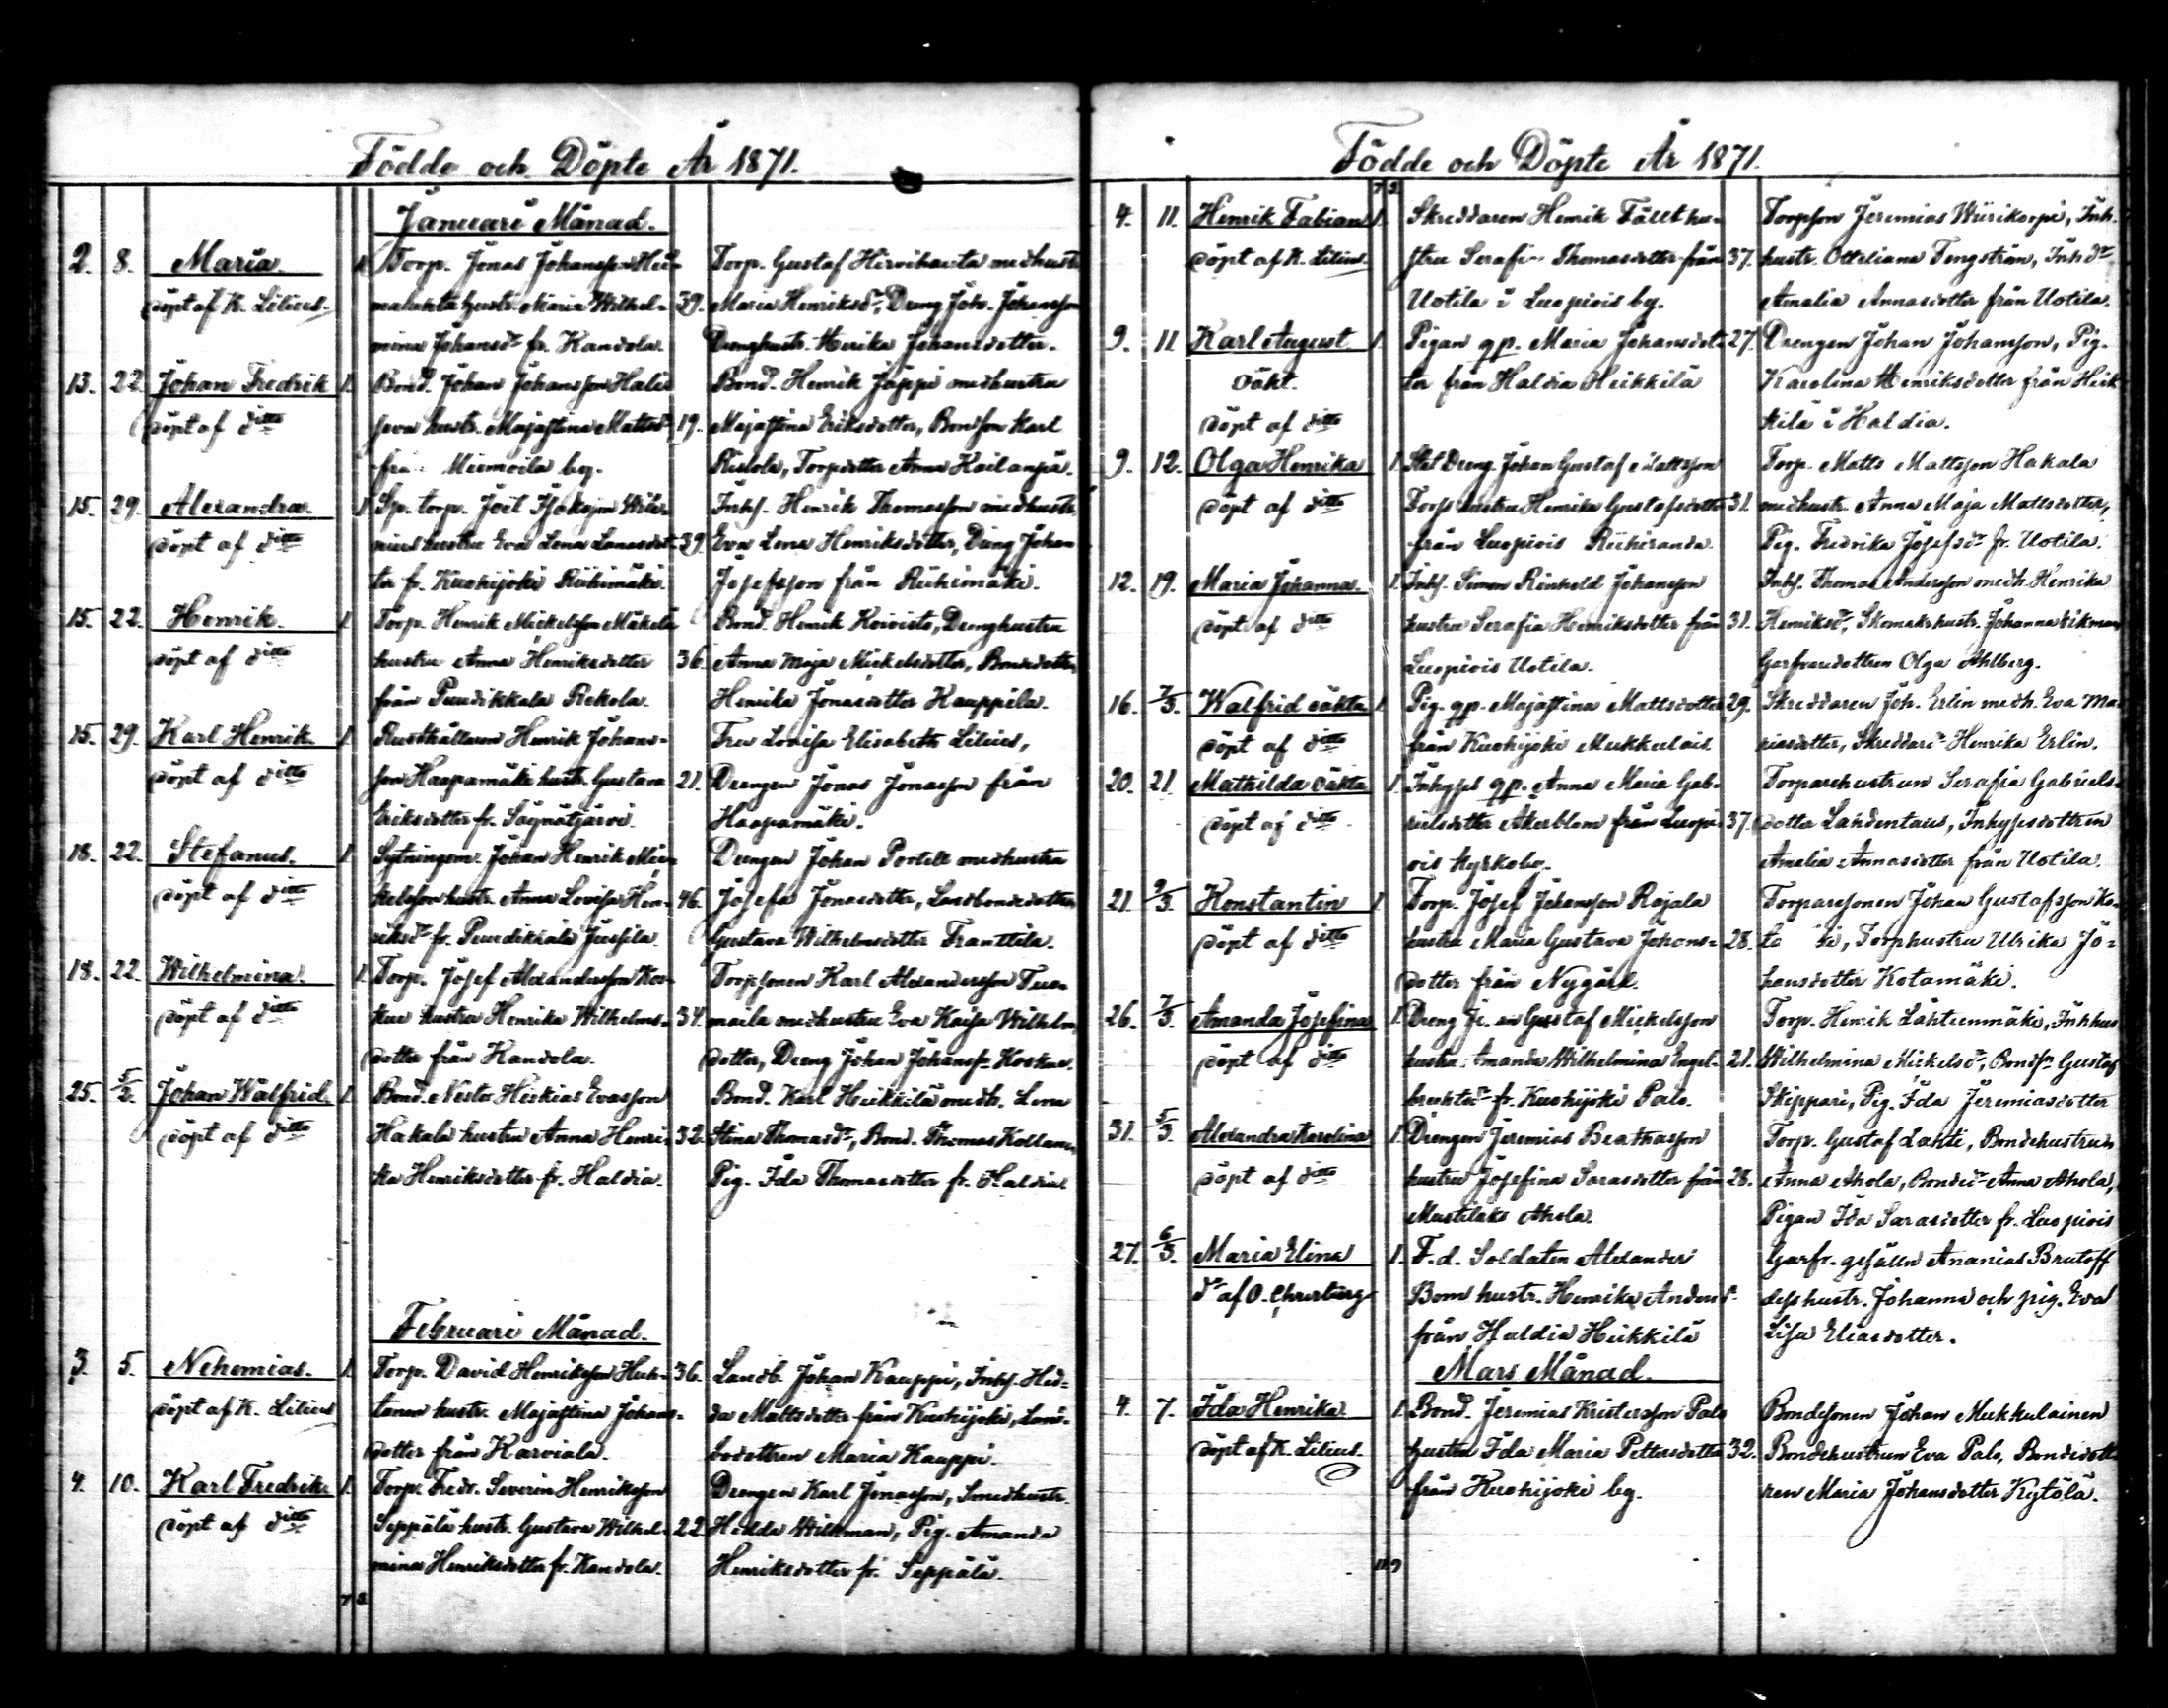 Födde och Döpte År 1871.
Januari Månad.
2. 8. Maria. 1 Torp. Jonas Johansson Hei- Torp. Gustaf Hirvihauta med hustr.
döpt af K. Lilius. hustr. Maria Wilhel- 39. Maria Henriksdr, Dreng Joh. Johansson
mina Johansdr fr. Kandola. Drenghustr. Henrika Johansdotter.
13. 22. Johan Fredrik 1. Bond. Johan Johansson Bond. Henrik Jäppi med hustru
döpt af ditto hustr. Majastina Mattsdr 19. Majastina Eriksdotter, Bondson Karl
från by. Torpdotter Anna
15. 29. Alexandra. 1 Sp. torp. Joel Isaksson Inhs. Henrik Thomasson med hustr.
döpt af ditto hustru Eva Lena 39. Eva Lena Henriksdotter, Dreng Johan
ter fr. Kuohijoki Riihimäki. Josefsson från Riihimäki.
15. 22. Henrik. 1. Torp. Henrik Mickelsson Mäkelä Bond. Henrik Koivisto, Drenghustru
döpt af ditto hustru Anna Henriksdotter 36. Anna Maja Mickelsdotter, Bondedotter
från Puudikkala Rekola. Henrika Jonasdotter Kauppila.
15. 29. Karl Henrik. 1. Rusthållaren Henrik Johans- Fru Lovisa Elisabeth Lilius,
döpt af ditto son Haapamäki hustr. Gustava 21. Drengen Jonas Jonasson från
Eriksdotter fr. Haapamäki.
18. 22. Stefanus. 1. Sytningsm. Johan Henrik Mic- Drengen Johan Portell med hustru
döpt af ditto kelsson hustr. Anna Lovisa Hen- 46. Josefa Jonasdotter, Landbondedottren
riksdr fr. Puudikkala Jussila. Gustava Wilhelmsdotter Franttila.
18. 22. Wilhelmina. 1. Torp. Josef Alexandersson Kos- Torpsonen Karl Alexandersson
kue hustru Henrika Wilhelms- 34. med hustru Eva Kaisa Wilhelms
dotter från Kandola. dotter, Dreng Johan Johanss. Koskue.
25. 5/2. Johan Walfrid. 1. Bond. Nestor Heskias Evasson Bond. Karl Heikkilä med h. Lena
döpt af ditto Hakala hustru Anna Henri- 32. Stina Thomasdr, Bond. Thomas
ka Henriksdotter fr. Haldia. Pig. Ida Thomasdotter fr. Haldia.
Februari Månad.
3. 5. Nehemias. 1. Torp. David Henriksson Huh- 36. Landb. Johan Kauppi, Inhs. Hed-
döpt af K. Lilius tanen hustr. Majastina Johans- da Mattsdotter från Kuohijoki, Land-
dotter från Karviala. bodottren Maria Kauppi.
4. 10. Karl Fredrik. 1. Torp. Fredr. Severin Henriksson Drengen Karl Jonasson, Smedhustr.
döpt af ditto Seppälä hustr. Gustava Wilhel- 22 Hedda Wikman, Pig. Amanda
mina Henriksdotter fr. Kandola. Henriksdotter fr. Seppälä.
7 8.
Födde och Döpte År 1871.
7 8.
4. 11. Henrik Fabian 1. Skreddaren Henrik Fällt hu- Torpson Jeremias Wiirikorpi, Inh.
döpt af K. Lilius. stru Serafi Thomasdotter från 37. hustr. Otteliana Tengström, Inhdr
Uotila i Luopiois by. Amalia Annasdotter från Uotila.
9. 11. Karl August. 1. Pigan qp. Maria Johansdot- 27. Drengen Johan Johansson, Pig.
oäkt. ter från Haldia Heikkilä Karolina Henriksdotter från Heik
döpt af ditto kilä i Haldia.
9. 12. Olga Henrika 1. Stat Dreng. Johan Gustaf Mattsson Torp. Matts Mattsson Hakala
döpt af ditto Torp hustru Henrika Gustafsdotter 31. med hustr. Anna Maja Mattsdotter,
från Luopiois Riihiranda. Pig. Fredrika Josefsdr fr. Uotila.
12. 19. Maria Johanna. 1. Inhs. Simon Reinhold Johansson Inhs. Thomas Andersson med h. Henrika
döpt af ditto hustru Serafia Henriksdotter från 31. Henriksdr, Skomakehustr. Johanna Wikman
Luopiois Uotila. Garfvaredottren Olga Ahlberg.
16. 7/3. Walfrid oäkta 1. Pig. qp. Majastina Mattsdotter 29. Skreddaren Joh. Erlin med h. Eva Ma-
döpt af ditto från Kuohijoki Mukkulais. riasdotter, Skreddaredr Henrika Erlin.
20. 21. Mathilda oäkta 1. Inhyses qp. Anna Maria Gab- Torparehustrun Serafia Gabriels-
döpt af ditto rielsdotter Åkerblom från Luopi- 37. dotter Lahdentaus, Inhysesdottren
ois Kyrkoby. Amalia Annasdotter från Uotila.
21. 9/3. Konstantin 1 Torp. Josef Johansson Rajala Torparesonen Johan Gustafsson Ko-
döpt af ditto hustru Maria Gustava Johans- 28. Torphustru Ulrika Jo-
dotter från Nygård. hansdotter Kotamäki.
26. 7/3. Amanda Josefina 1. Dreng Gustaf Mickelsson Torp. Henrik Lähteenmäki, Inhhus
döpt af ditto hustru Amanda Wilhelmina Engel- 21. Wilhelmina Mickelsdr, Bondsn Gustaf
brektsdr fr. Kuohijoki Palo. Skippari, Pig. Ida Jeremiasdotter
31. 5/3. Alexandra Karolina 1. Drengen Jeremias Beathasson Torp. Gustaf Lahti, Bondehustrun
döpt af ditto hustru Josefina Sarasdotter från 28. Anna Ahola, Bondedr Anna Ahola,
Mustilaks Ahola. Pigan Ida Sarasdotter fr. Luopiois
27. 6/3. Maria Elina 1. F.d. Soldaten Alexander Garfv. gesällen Ananias Brutoff
dr af O. Bom hustr. Henrika Andersd. dess hustr. Johanna och pig. Eva
från Haldia Heikkilä Lisa Eliasdotter.
Mars Månad.
4. 7. Ida Henrika. 1. Bond. Jeremias Kristersson Palo Bondesonen Johan Mukkulainen
döpt af K. Lilius. hustru Ida Maria Pettersdotter 32. Bondehustrun Eva Palo, Bondedott
från Kuohijoki by. ren Maria Johansdotter Kytölä.
11 9